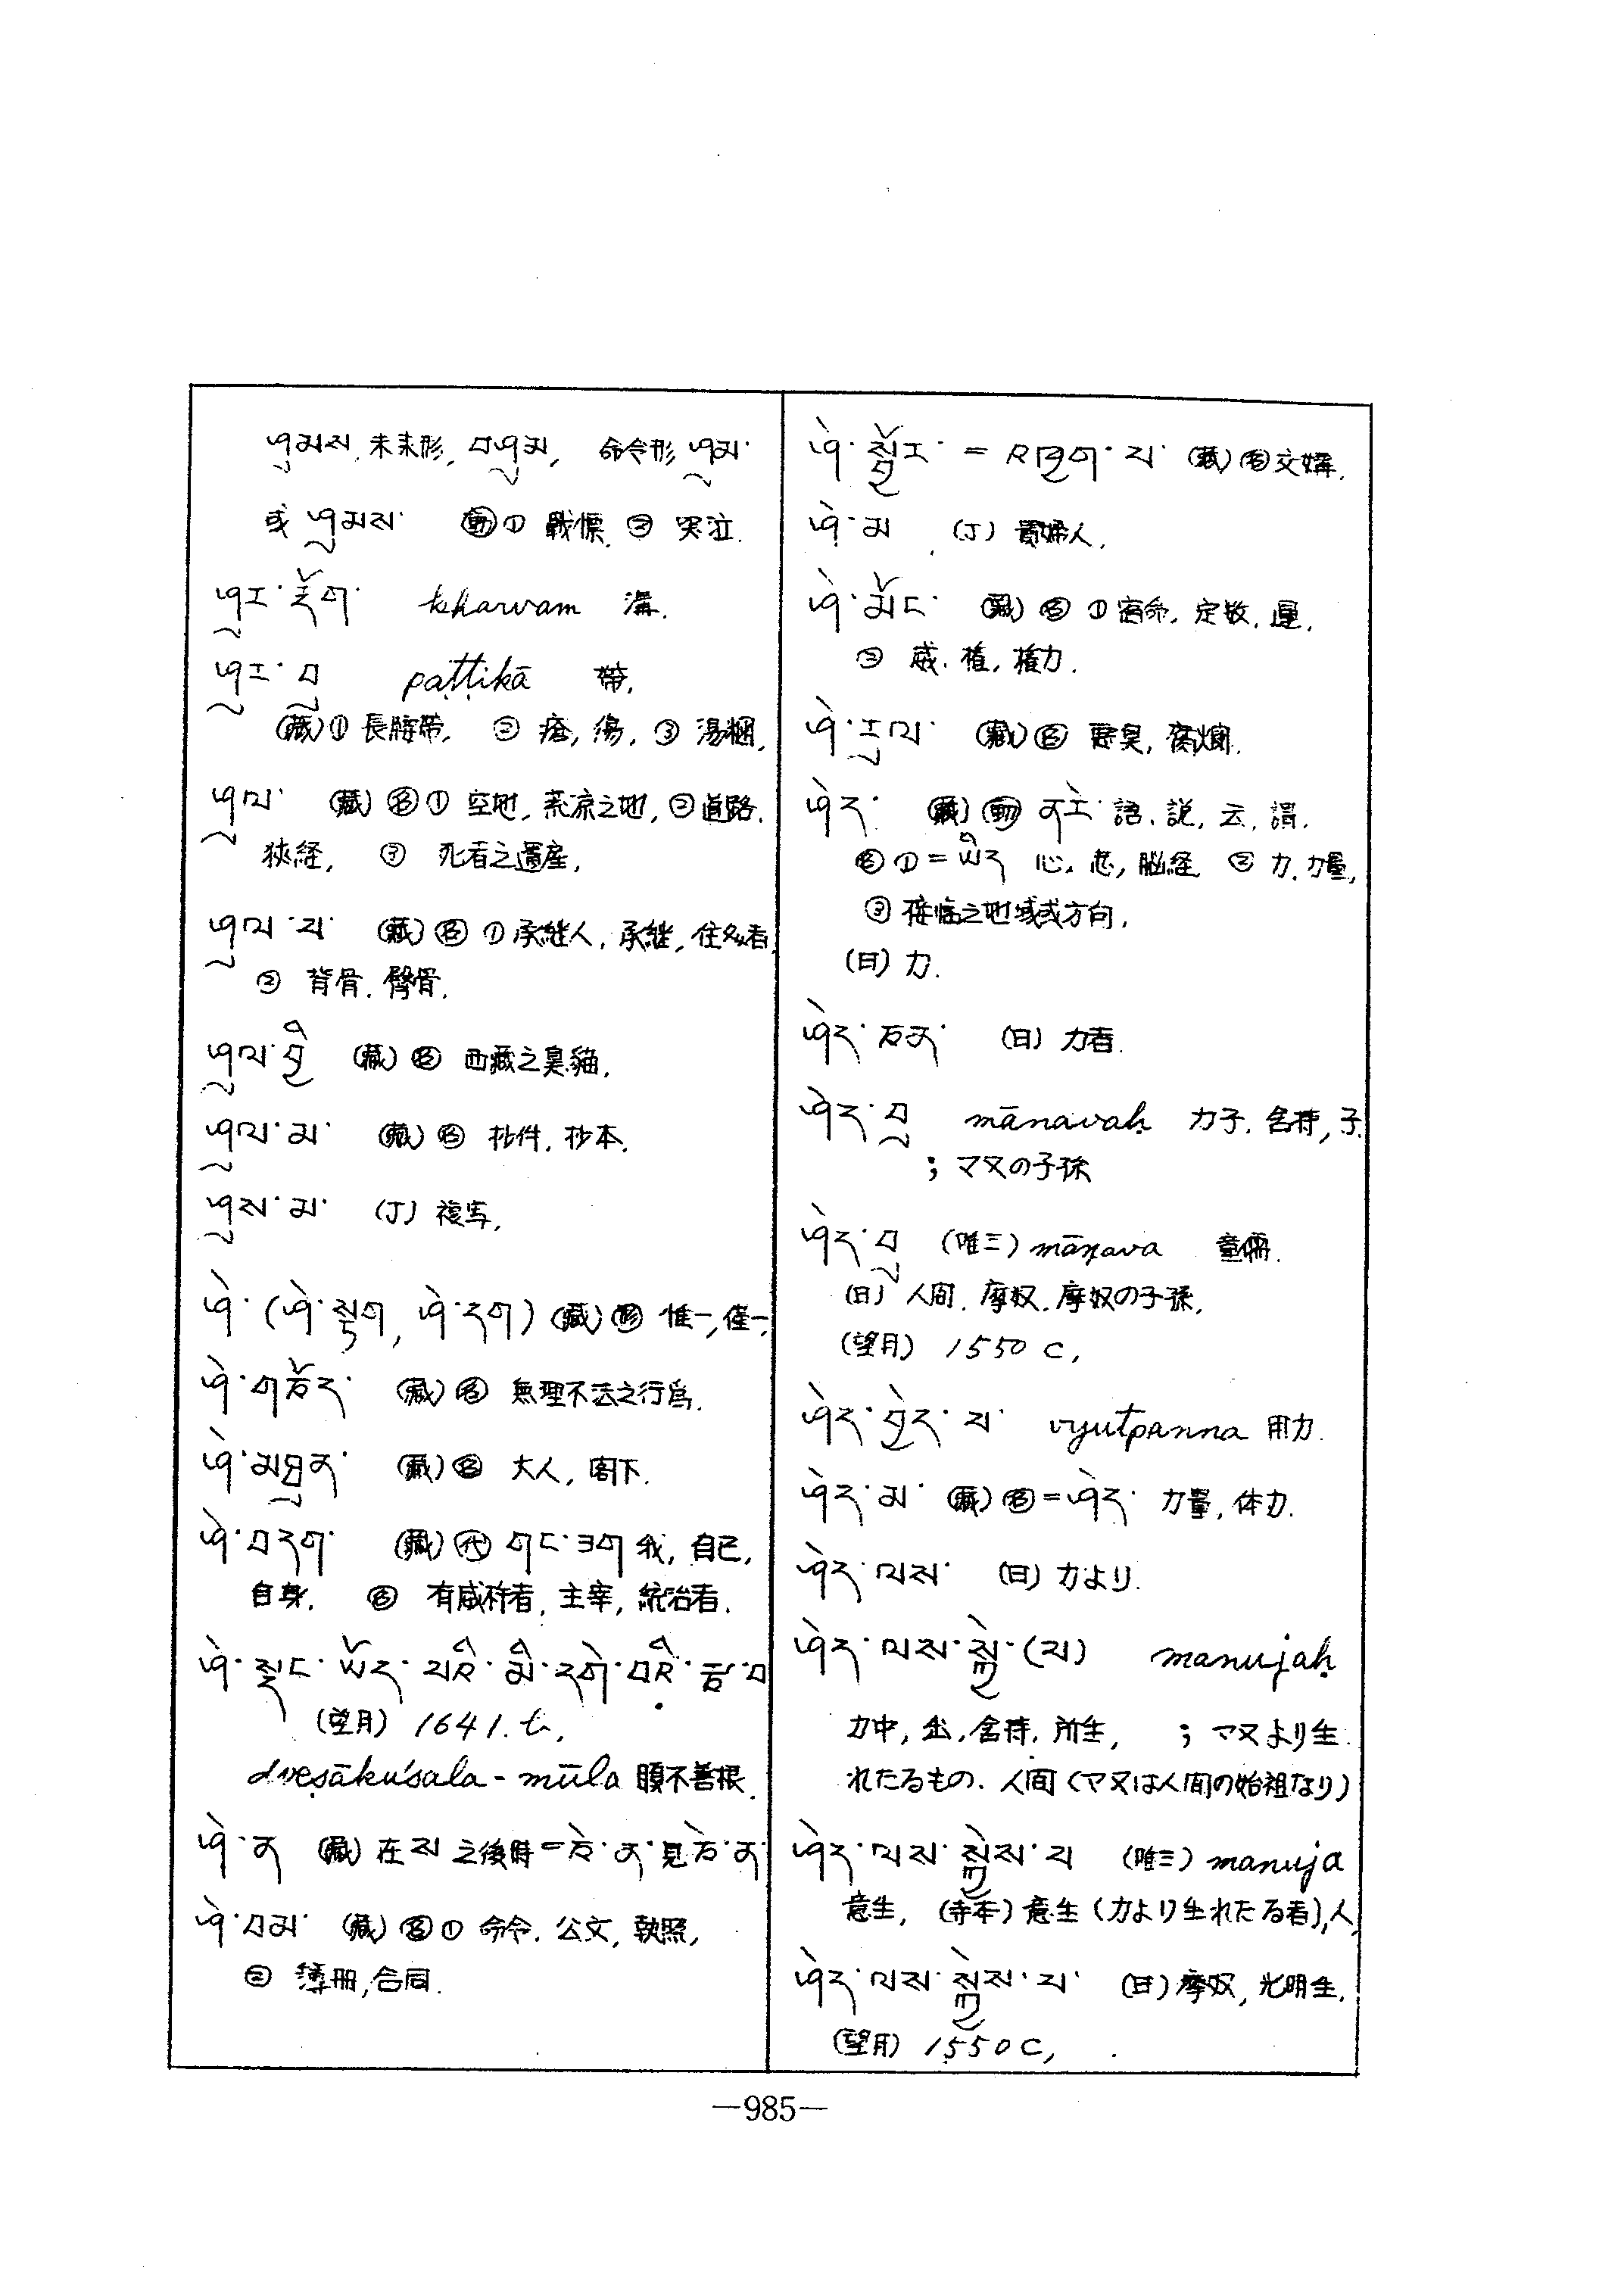 ཤུམས, 未来形, བཤུམ, 命令形 ཤུམ་
或 ཤུམས་ (動)① 戰慄, ② 哭泣.
ཤུར་རྫོག་ kharvam 溝.
ཤུར་བུ paṭṭikā 帶,
(藏)① 長腰帶, ② 瘡, 傷, ③ 湯梱,
ཤུལ་ (藏)(名)① 空地, 荒凉之地, ② 道路,
狹経, ③ 死者之遺産,
ཤུལ་པ་ (藏)(名)① 承継人, 承継,
② 背骨, 臀骨.
ཤུལ་བྱི (藏)(名) 西藏之臭貓,
ཤུལ་མ་ (藏)(名) 抄件, 抄本.
ཤུས་མ་ (J) 複写,
ཤེ་ (ཤེ་སྟག, ཤེ་དག) (藏)(形) 惟一, 僅一,
ཤེ་གཙོད་ (藏)(名) 無理不法之行爲.
ཤེ་མཐུན་ (藏)(名) 大人, 閣下.
ཤེ་བདག་ (藏)(代) གང་ཟག 我, 自己,
自身, (名) 有威権者, 主宰, 統治者.
ཤེ་སྡང་ཡོད་པའི་མི་དགེ་བའི་རྩ་བ
(望月) 1641.七,
dveṣākuśala-mūla 瞋不善根.
ཤེ་ན (藏) 在 ས 之後時 = ཅེ་ན་ 見 ཅེ་ན་
ཤེ་བམ་ (藏)(名)① 命令, 公文, 執照,
② 簿冊, 合同.
ཤེ་སྦྱོར་ = འཁྲིག་པ་ (藏)(名) 交媾.
ཤེ་མ (J) 貴婦人,
ཤེ་མོང་ (藏)(名)① 宿命, 定数, 運,
② 威, 権, 権力.
ཤེ་རུལ་ (藏)(名) 悪臭, 腐爛.
ཤེད་ (藏)(動) ཟེར་ 語, 説, 云, 謂.
(名)① = ཡིད 心, 意, 脳経, ② 力, 力量,
③ 接臨之地域或方向,
(日) 力.
ཤེད་ཅན་ (日) 力者.
ཤེད་བུ mānavaḥ 力子, 含持, 子.
; マヌの子孫
ཤེད་བུ (唯三) māṇava 童儒.
(日) 人間, 摩奴, 摩奴の子孫,
(望月) 1550 C,
ཤེད་བྱེད་པ་ vyutpanna 用力.
ཤེད་མ་ (藏)(名) = ཤེད་ 力量, 体力.
ཤེད་ལས་ (日) 力より.
ཤེད་ལས་སྐྱེ་(པ) manujaḥ
力中, 出, 含持, 所生, ; マヌより生
れたるもの. 人間 (マヌは人間の始祖なり)
ཤེད་ལས་སྐྱེས་པ (唯三) manuja
意生, (寺本) 意生 (力より生れたる者),人,
ཤེད་ལས་སྐྱེས་པ་ (日) 摩奴, 光明生,
(望月) 1550 C,
—985—